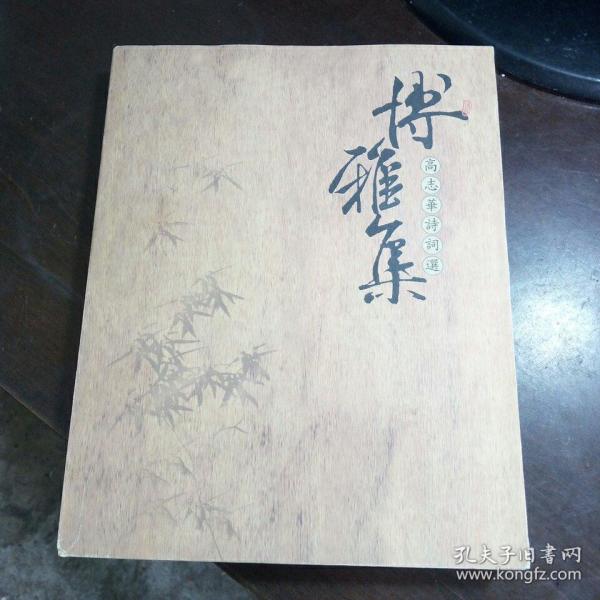 博雅集
高志華詩詞選
孔夫子旧書网
www.kongfz.com